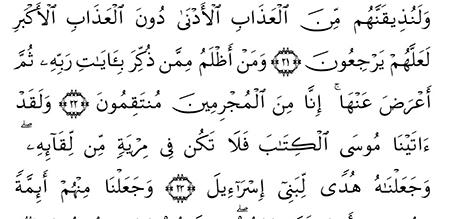 وَلَنُذِيقَنَّهُم مِّنَ ٱلْعَذَابِ ٱلْأَدْنَىٰ دُونَ ٱلْعَذَابِ ٱلْأَكْبَرِ
لَعَلَّهُمْ يَرْجِعُونَ ﴿٢١﴾ وَمَنْ أَظْلَمُ مِمَّن ذُكِّرَ بِـَٔايَـٰتِ رَبِّهِۦ ثُمَّ
أَعْرَضَ عَنْهَآ ۚ إِنَّا مِنَ ٱلْمُجْرِمِينَ مُنتَقِمُونَ ﴿٢٢﴾ وَلَقَدْ
ءَاتَيْنَا مُوسَى ٱلْكِتَـٰبَ فَلَا تَكُن فِى مِرْيَةٍ مِّن لِّقَآئِهِۦ ۖ
وَجَعَلْنَـٰهُ هُدًى لِّبَنِىٓ إِسْرَٰٓءِيلَ ﴿٢٣﴾ وَجَعَلْنَا مِنْهُمْ أَئِمَّةً